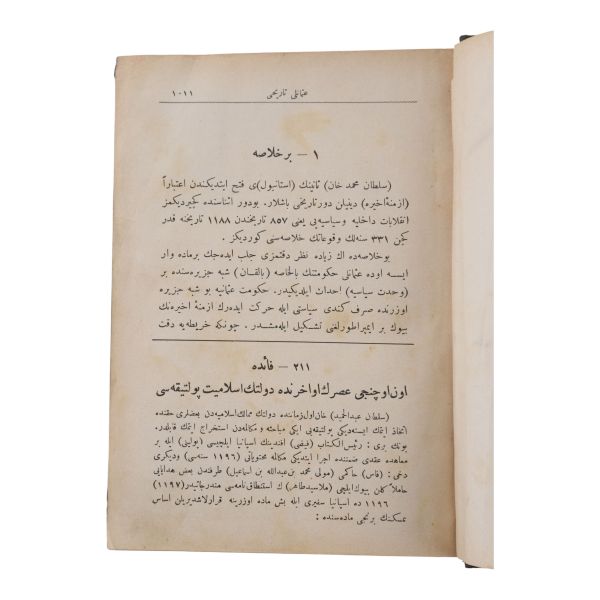 عثمانلی تاریخی ١٠١١
١ – بر خلاصه
(سلطان محمد خان) ثانینك (استانبول)ی فتح ایتدیكندن اعتباراً
(ازمنۀ اخیره) دینیلن دور تاریخی باشلار. بودور اثناسنده كچیردیكمز
انقلابات داخلیه و سیاسیه‌یی یعنی ٨٥٧ تاریخندن ١١٨٨ تاریخنه قدر
كچن ٣٣١ سنه‌لك وقوعاتك خلاصه‌سنی كوردیكز.
بوخلاصه‌ده اك زیاده نظر دقتمزی جلب ایده‌جك برماده وار
ایسه اوده عثمانلی حكومتنك بالخاصه (بالقان) شبه جزیره‌سنده بر
(وحدت سیاسیه) احداث ایلدیكیدر. حكومت عثمانیه بو شبه جزیره
اوزرنده صرف كندی سیاستی ایله حركت ایده‌رك ازمنۀ اخیره‌نك
بیوك بر ایمپراطورلغنی تشكیل ایله‌مشدر. چونكه خریطه‌یه دقت
٢١١ – فائده
اون اوچنجی عصرك اواخرنده دولتك اسلامیت پولتیقه‌سی
(سلطان عبدالحمید) خان اول زماننده دولتك ممالك اسلامیه‌دن بعضلری حقنده
اتخاذ ایتمك ایسته‌دیكی پولتیقه‌یی ایكی مباحثه و مكالمه‌دن استخراج ایتمك قابلدر.
بونك بری: رئیس‌الكتاب (فیضی) افندینك اسپانیا ایلچیسی (بولینی) ایله بر
معاهده عقدی ضمننده اجرا ایتدیكی مكالمه محتویاتی (١١٩٦ سنه‌سی) و دیكری
دخی: (فاس) حاكمی (مولی محمد بن عبدالله بن اسماعیل) طرفندن بعض هدایایی
حاملاً كلن بیوك ایلچی (ملاسیدطاهر) ك استنطاق‌نامه‌سی مندرجاتیدر (١١٩٧)
١١٩٦ ده اسپانیا سفیری ایله بش ماده اوزرینه قرارلاشدیریلان اساس
تمسكنك برنجی ماده‌سنده :